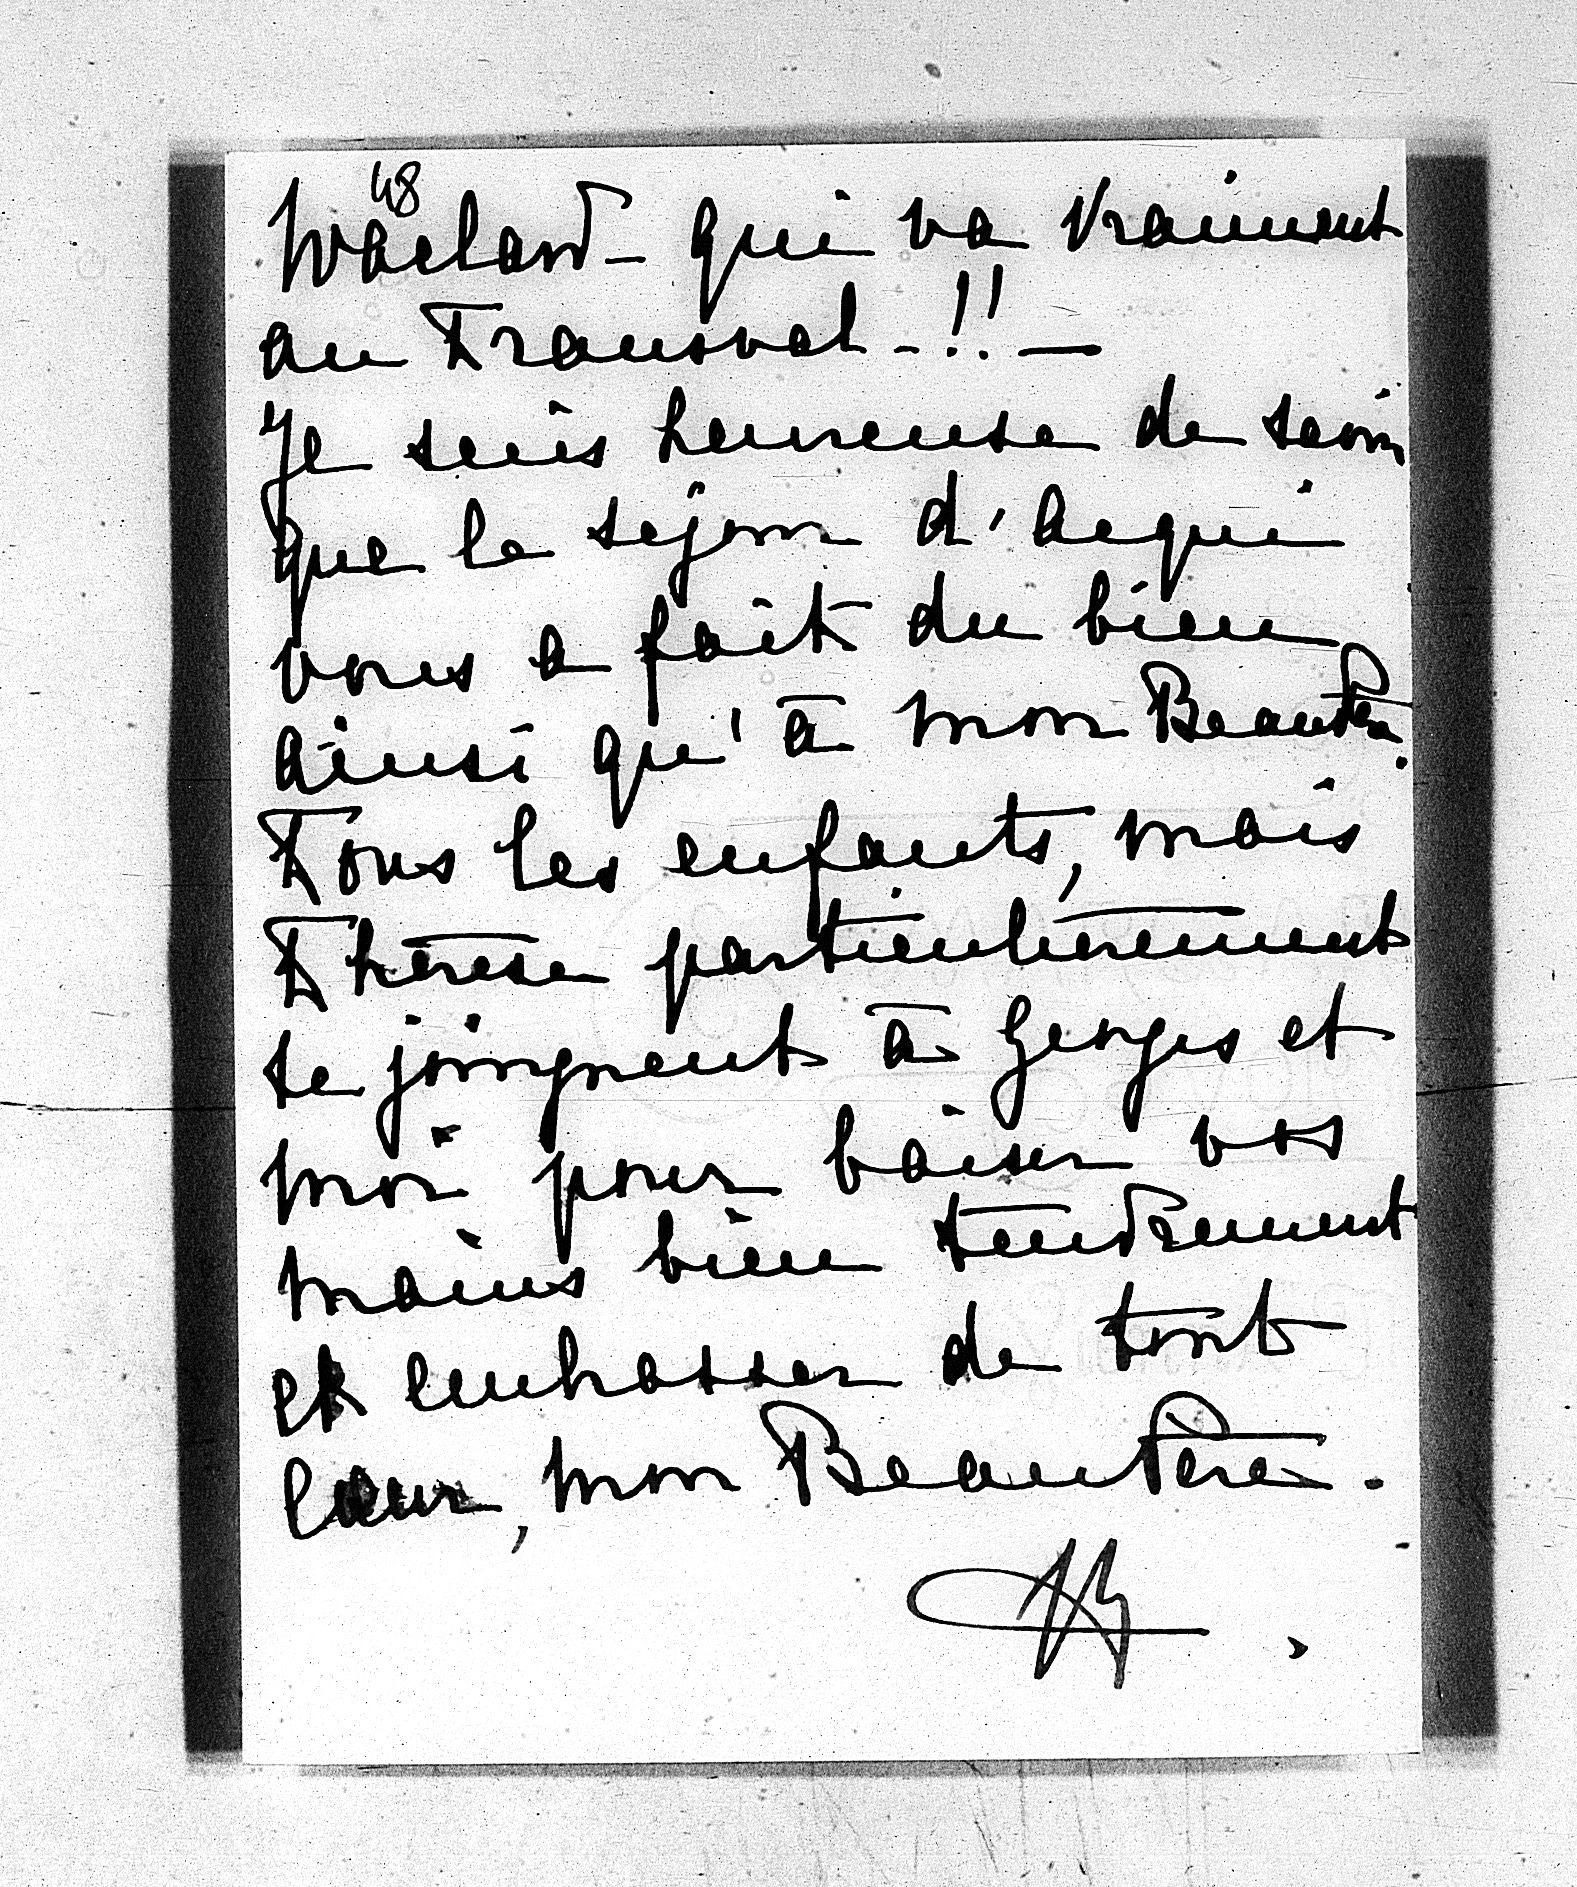 48
Waclard – qui va vraiment
au Transval – !! —
Je suis heureuse de savoir
que le sejour d'Acqui
vous a fait du bien
ainsi qu'à mon BeauPère.
Tous les enfants, mais
Thérèse particulièrement
se joignent à Georges et
moi pour baiser vos
mains bien tendrement
et embrasser de tout
cœur, mon BeauPère.